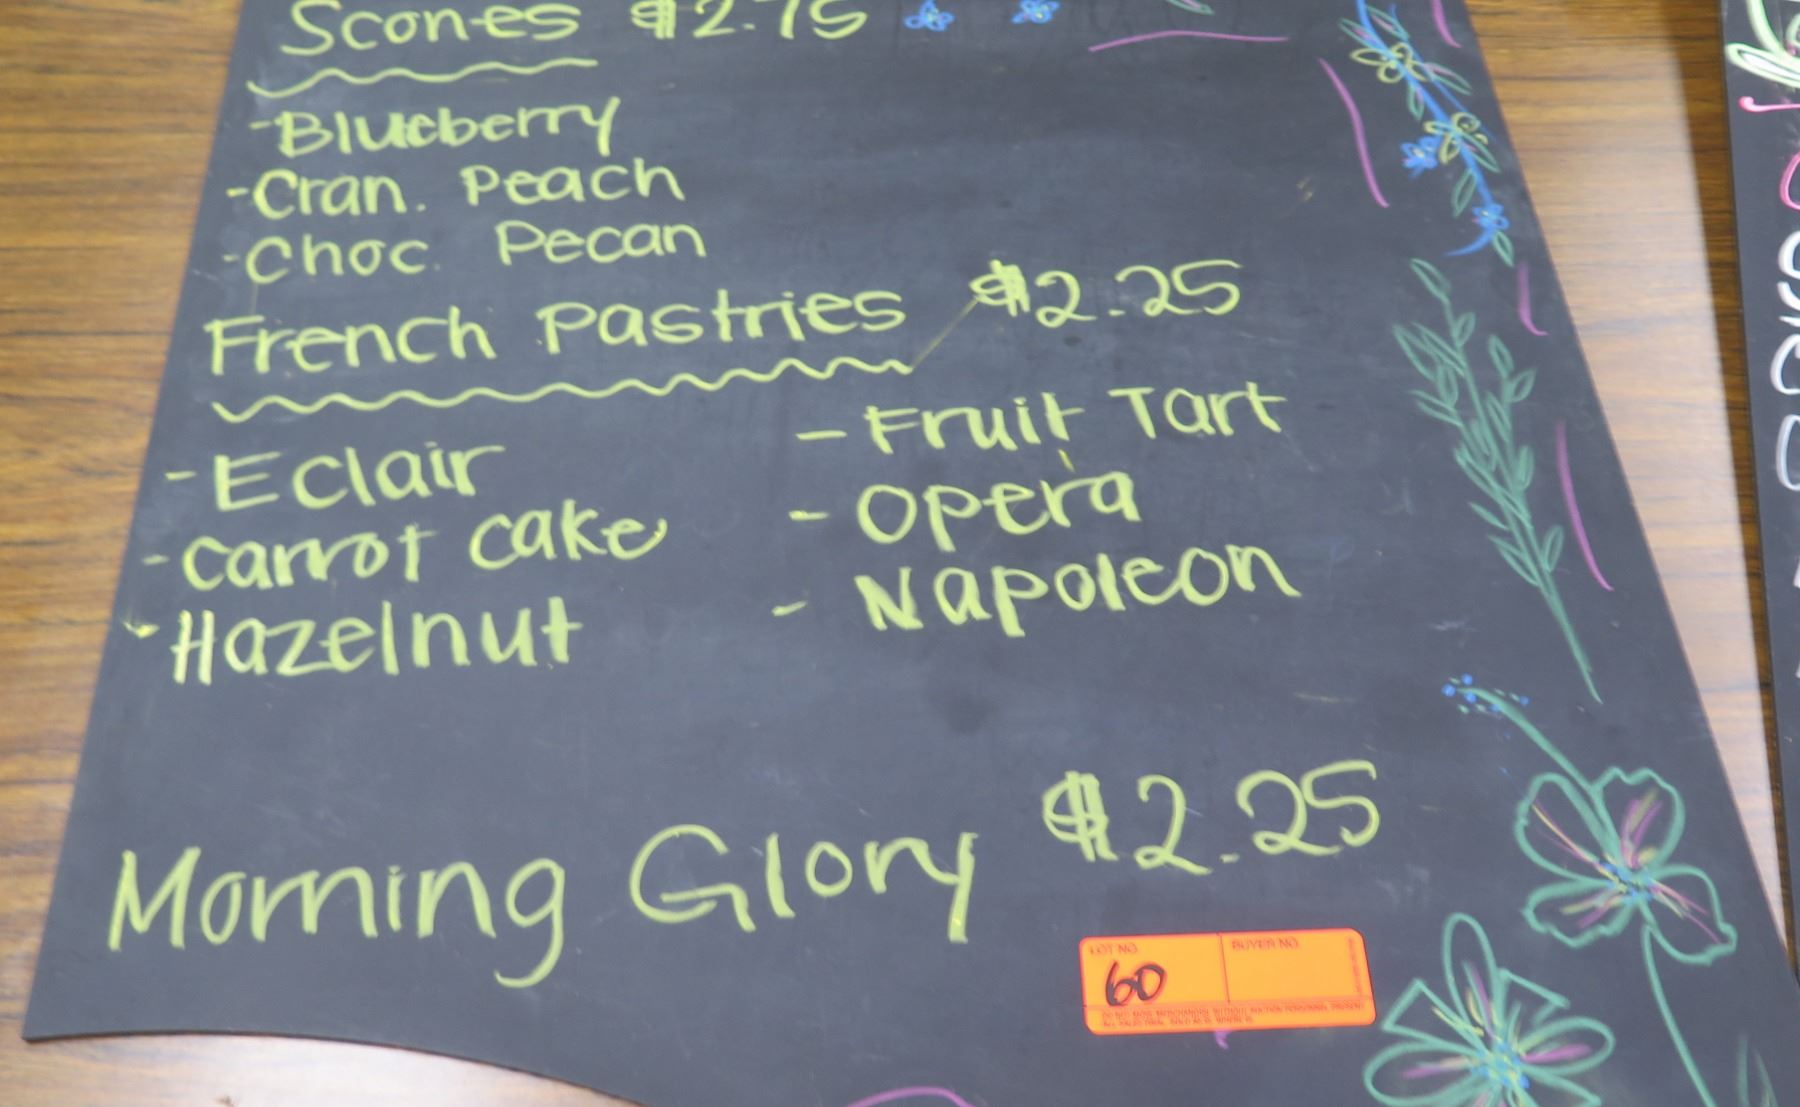 Scones $2.75
-Blueberry
-Cran. Peach
-Choc. Pecan
French Pastries $2.25
-Eclair
-Carrot Cake
-Hazelnut
-Fruit Tart
-Opera
-Napoleon
Morning Glory $2.25
LOT NO.
BUYER NO.
60